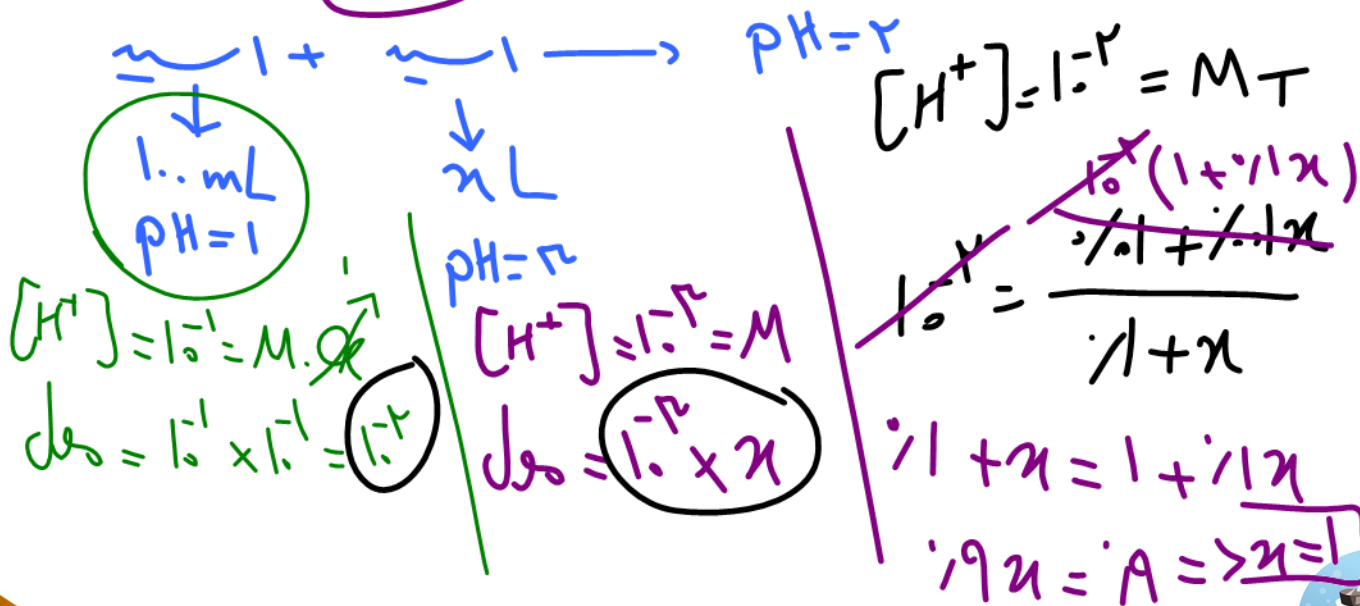 + → pH=۲
۱۰۰ mL
pH=۱
x L
pH=۳
[H⁺]=۱۰⁻¹=M.α ۱
مول = ۱۰⁻¹×۱۰⁻¹=۱۰⁻²
[H⁺]=۱۰⁻³=M
مول = ۱۰⁻³×x
[H⁺]=۱۰⁻²=M_T
۱۰⁻²(۱+۰/۱x)
۱۰⁻² = ۰/۰۱+۰/۰۰۱x
۰/۱+x
۰/۱+x=۱+۰/۱x
۰/۹x=۰/۹=>x=۱